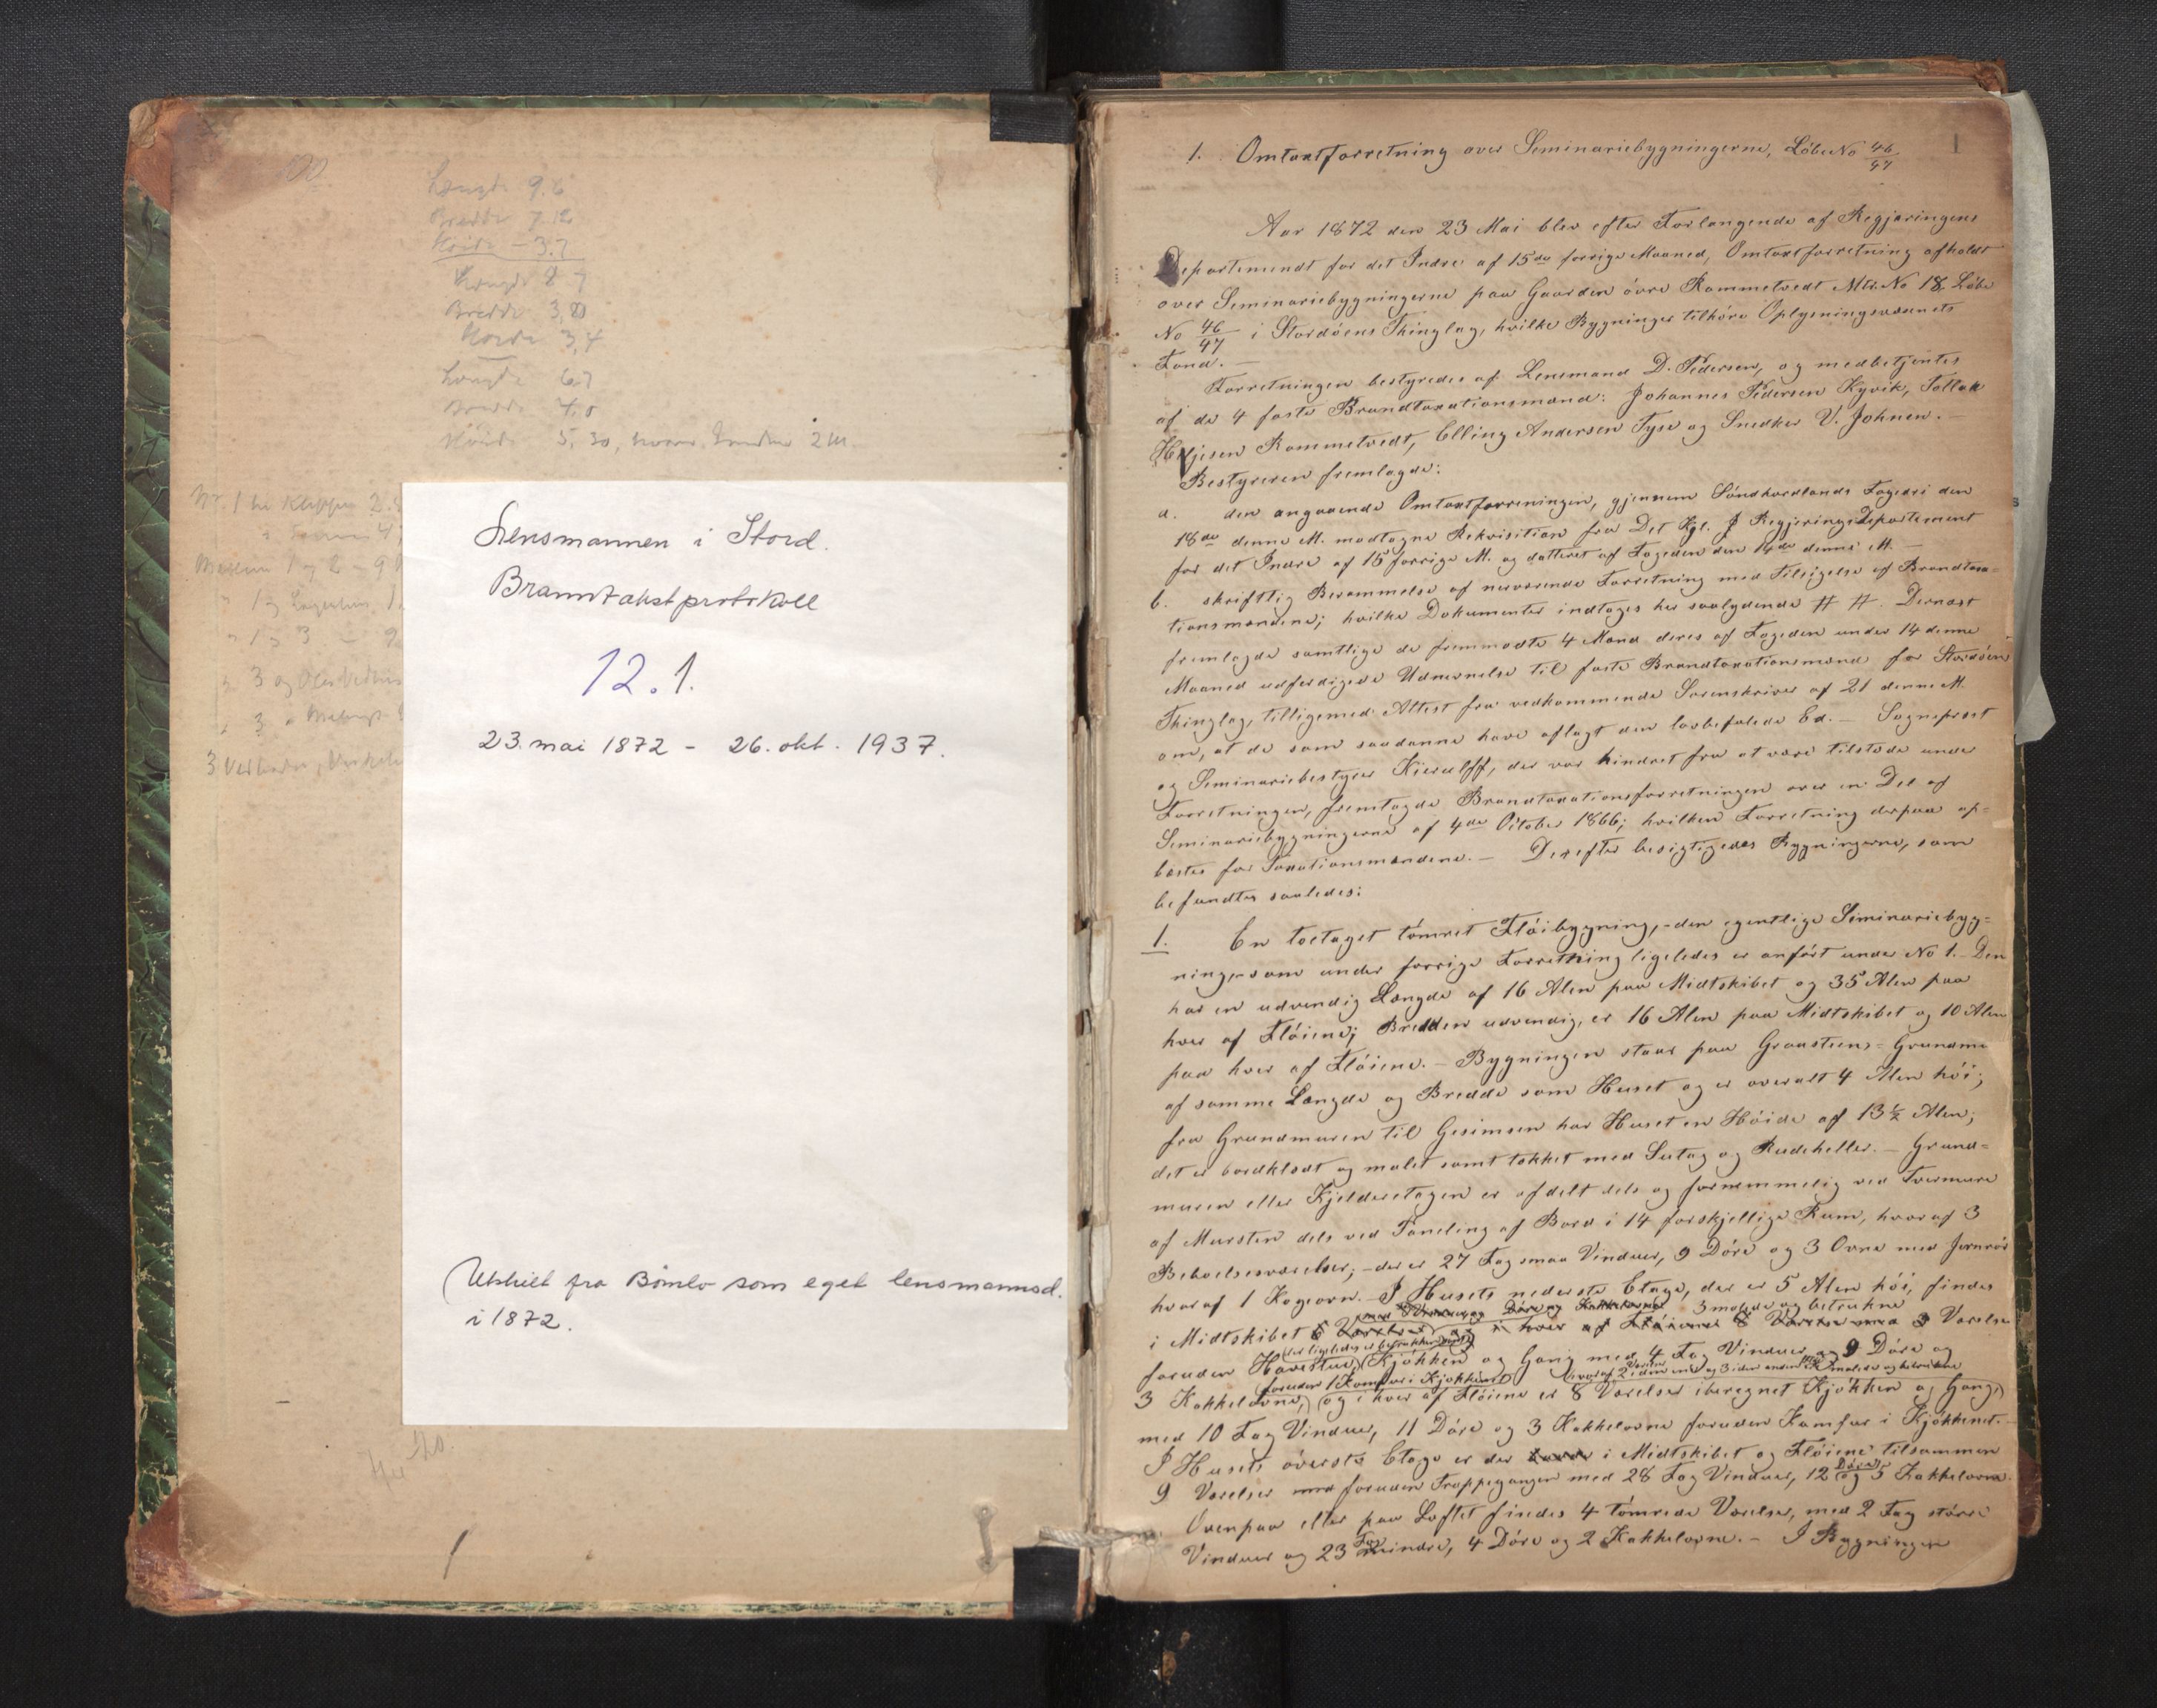 Længde 9.6
Bredde 7.12
Høide - 3.7
Længde 8 7
Bredde 3,80
Høide 3,4
Længde 67
Bredde 4,0
Høide 5,30, 2 M.
Nr. 1 Klippen 2.
4,
1 og 2 - 9
" 1 og
" 1 og 3 - 9
" 3 og
" 3
3
Lensmannen i Stord.
Branntakstprotokoll
12.1.
23. mai 1872 - 26. okt. 1937.
(Utskilt fra Bømlo som eget lensmannsd.
i 1872.
1
1. Omtaxtforretning over Seminariebygningerne, LöbeNo 46/47
Aar 1872 den 23 Mai blev efter Forlangende af Regjeringens
Departementet for det Indre af 15de forrige Maaned, Omtaxtforretning afholdt
over Seminariebygningerne paa Gaarden övre Rommetvedt Mtr. No 18. Löbe
No 46/47 i Stordöens Thinglag, hvilke Bygninger tilhöre Oplysningsvæsenets
Fond. —
Forretningen bestyredes af Lensmand D. Pedersen, og medbetjentes
af de 4 faste Brandtaxationsmænd: Johannes Pedersen Hyvik, Tollak
Heljesen Rommetvedt, Elling Andersen Tyse og Snedker V. Johnsen. —
Bestyreren fremlagde:
a. den angaaende Omtaxtforreningen, gjennem Söndhordlands Fogderi den
18de denne M. modtagne Rekvisition fra Det Kgl. Regjerings Departement
for det Indre af 15 forrige M. og datteret af Fogeden den 14de denne M. —
b. skriftlig Berammelse af nærværende Forretning med Tilsigelse af Brandtaxa=
tionsmændene; hvilke Dokumenter indtages her saalydende # #. Dernæst
fremlagde samtlige de fremmødte 4 Mænd deres af Fogeden under 14 denne
Maaned udferdigede Udnævnelse til faste Brandtaxationsmænd for Stordöens
Thinglag, tilligemed Attest fra vedkommende Sorenskriver af 21 denne M.
om, at de som saadanne have aflagt den lovbefalede Ed. — Sogneprest
og Seminariebestyrer Kierulff, der var hindret fra at være tilstede under
Forretningen, fremlagde Brandtaxationsforretningen over en Del af
Seminariebygningerne af 4de October 1866; hvilken Forretning derpaa op=
læstes for Taxationsmændene. — Derefter besigtigedes Bygningerne, som
befandtes saaledes:
1. En toetaget tömret Flöibygning, - den egentlige Seminariebyg=
ning, som under forrige Forretning ligeledes er anfört under No 1. Den
har en udvendig Længde af 16 Alen paa Midtskibet og 35 Alen paa
hver af Flöiene; Bredden udvendig, er 16 Alen paa Midtskibet og 10 Alen
paa hver af Flöiene. — Bygningen staar paa Graasteens= Grundmur
af samme Længde og Bredde som Huset og er overalt 4 Alen höi;
fra Grundmuren til Gesimsen har Huset en Höide af 13½ Alen;
det er bordklædt og malet samt tækket med Sutag og Rudeheller. — Grund=
muren eller Kjelderetagen er afdelt dels og fornemmelig ved Tvermure
af Mursten dels ved Paneling af Bord i 14 forskjellige Rum, hvoraf 3
Beboelsesværelser; - der er 27 Fag smaa Vinduer, 9 Döre og 3 Ovne med Jernrör
hvoraf 1 Kogeovn. — I Husets nederste Etage, der er 5 Alen höi, findes
med Vinduer og Döre og Kakkelovne 3 malede og betrukne
i Midtskibet 6 Værelser og i hver af Flöiene 8 Værelser med 3 Værelser
der ligeledes er betrukken og
foruden Havestue, Kjökken og Gang med 4 Fag Vinduer og 9 Döre og
foruden 1 Komfur i Kjökkenet hvoraf 2 Værelser i den ene og 3 i den anden malede og betrukne
3 Kakkelovne, og i hver af Flöiene er 8 Værelser iberegnet Kjökken og Gang,
med 10 Fag Vinduer, 11 Döre og 3 Kakkelovne foruden Komfur i Kjökkenet. —
I Husets överste Etage er der i Midtskibet og Flöiene tilsammen
Döre
9 Værelser med foruden Trappegangen med 28 Fag Vinduer, 12 og 5 Kakkelovne.
Ovenpaa eller paa Loftet findes 4 tömrede Værelser, med 2 Fag större
Fag
Vinduer og 23 mindre, 4 Döre og 2 Kakkelovne. — I Bygningen